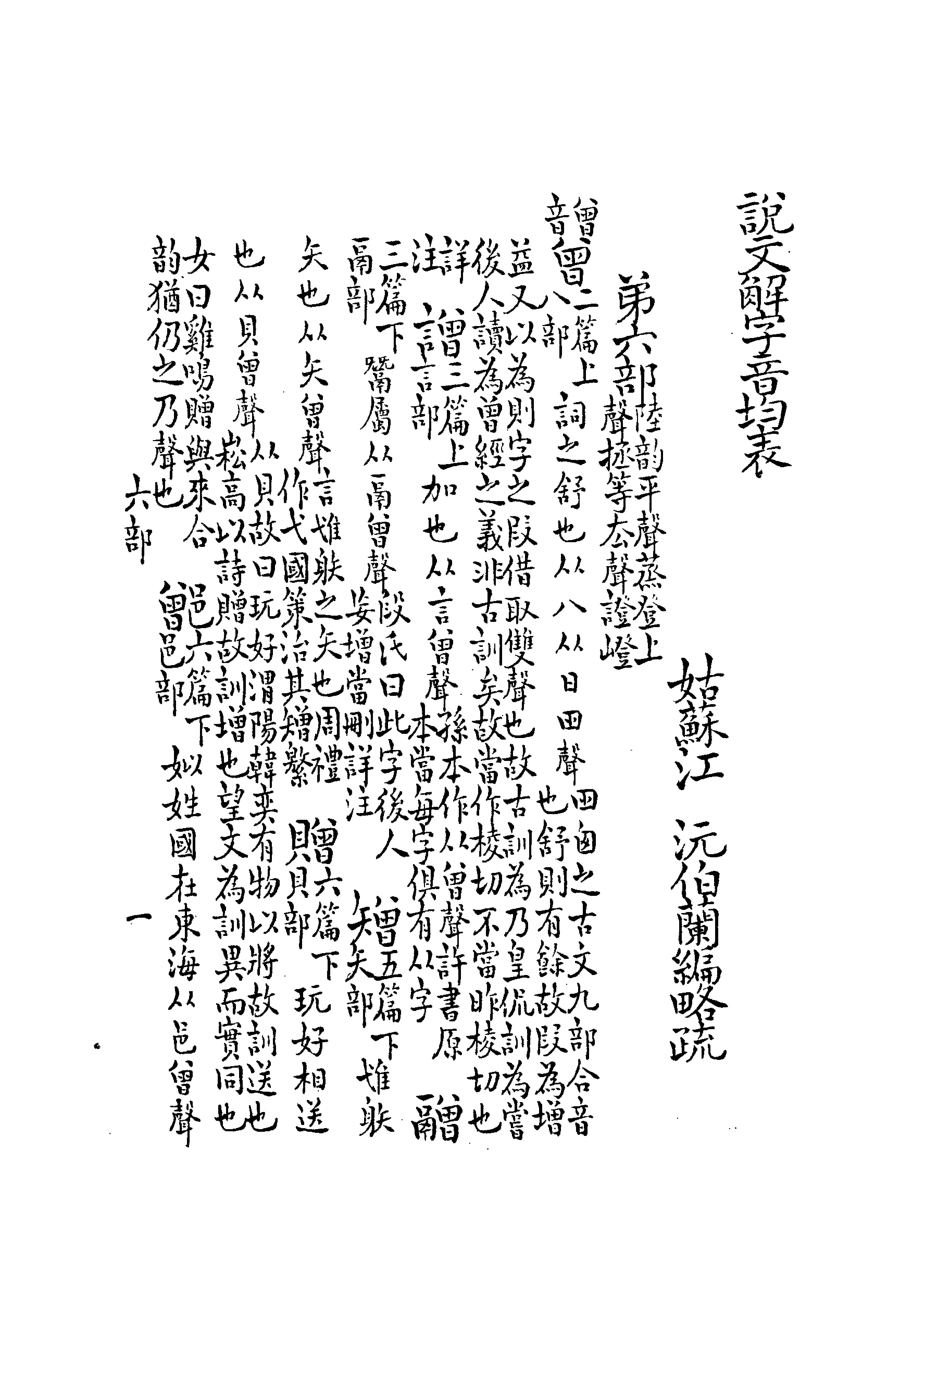 說文解字音均表
姑蘇江 沅伯蘭編略疏
第六部 陸韵平聲蒸登上聲拯等去聲證嶝
曾音 曾 二篇上八部 詞之舒也从八从曰囧聲 囧囱之古文九部合音也舒則有餘故叚為增
益又以為則字之叚借取雙聲也故古訓為乃皇侃訓為嘗後人讀為曾經之義非古訓矣故當作棱切不當昨棱切也
詳注 譄 三篇上言部 加也从言曾聲 孫本作从曾聲許書原本當每字俱有从字 䰝
三篇下鬲部 鬵屬从鬲曾聲 段氏曰此字後人妄增當刪詳注 矰 五篇下矢部 隿䠶
矢也从矢曾聲 言隿䠶之矢也周禮作弋國策治其矰繳 贈 六篇下貝部 玩好相送
也从貝曾聲 从貝故曰玩好渭陽韓奕有物以將故訓送也崧高以詩贈故訓增也望文為訓異而實同也
女曰雞鳴贈與來合韵猶仍之乃聲也 鄫 六篇下邑部 姒姓國在東海从邑曾聲
六部 一